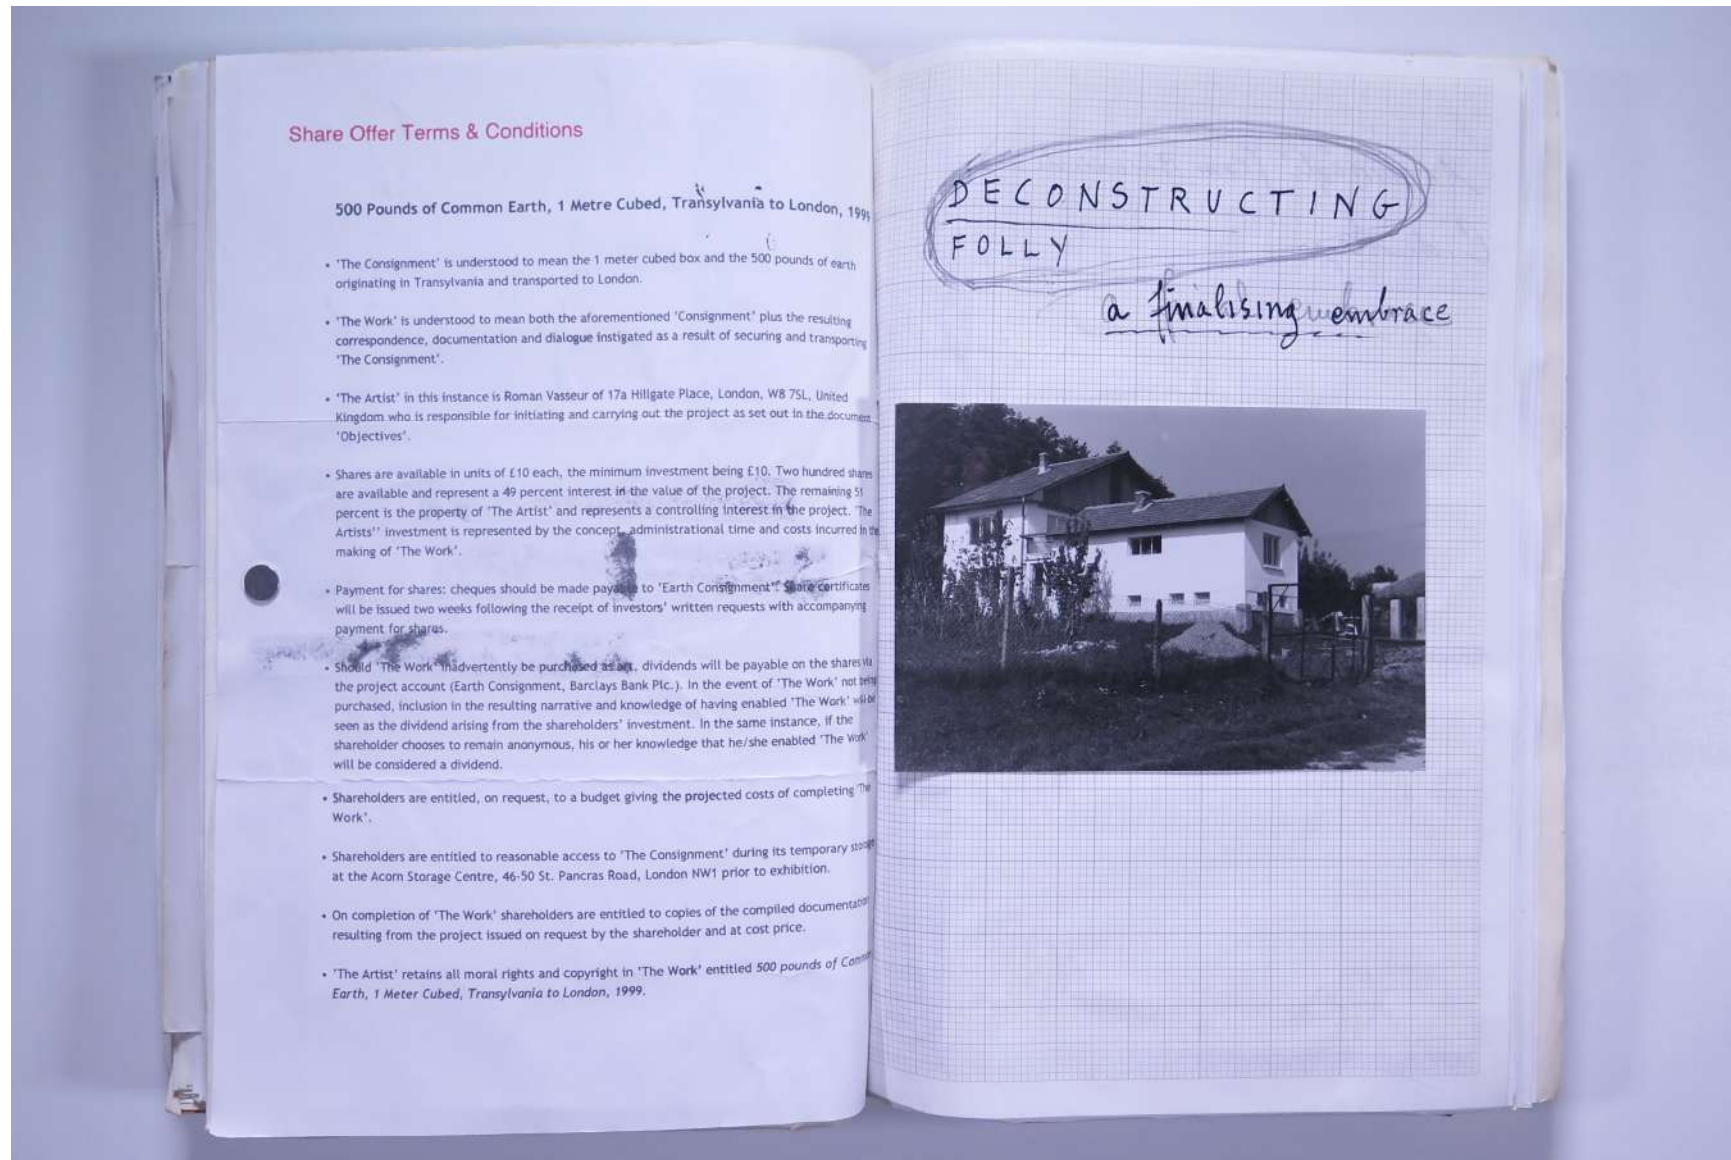 Share Offer Terms & Conditions
500 Pounds of Common Earth, 1 Metre Cubed, Transylvania to London, 1999
• 'The Consignment' is understood to mean the 1 meter cubed box and the 500 pounds of earth
originating in Transylvania and transported to London.
• 'The Work' is understood to mean both the aforementioned 'Consignment' plus the resulting
correspondence, documentation and dialogue instigated as a result of securing and transporting
'The Consignment'.
• 'The Artist' in this instance is Roman Vasseur of 17a Hillgate Place, London, W8 7SL, United
Kingdom who is responsible for initiating and carrying out the project as set out in the document
'Objectives'.
• Shares are available in units of £10 each, the minimum investment being £10. Two hundred shares
are available and represent a 49 percent interest in the value of the project. The remaining 51
percent is the property of 'The Artist' and represents a controlling interest in the project. 'The
Artists'' investment is represented by the concept, administrational time and costs incurred in the
making of 'The Work'.
• Payment for shares: cheques should be made payable to 'Earth Consignment'. Share certificates
will be issued two weeks following the receipt of investors' written requests with accompanying
payment for shares.
• Should 'The Work' inadvertently be purchased as art, dividends will be payable on the shares via
the project account (Earth Consignment, Barclays Bank Plc.). In the event of 'The Work' not being
purchased, inclusion in the resulting narrative and knowledge of having enabled 'The Work' will be
seen as the dividend arising from the shareholders' investment. In the same instance, if the
shareholder chooses to remain anonymous, his or her knowledge that he/she enabled 'The Work'
will be considered a dividend.
• Shareholders are entitled, on request, to a budget giving the projected costs of completing 'The
Work'.
• Shareholders are entitled to reasonable access to 'The Consignment' during its temporary storage
at the Acorn Storage Centre, 46-50 St. Pancras Road, London NW1 prior to exhibition.
• On completion of 'The Work' shareholders are entitled to copies of the compiled documentation
resulting from the project issued on request by the shareholder and at cost price.
• 'The Artist' retains all moral rights and copyright in 'The Work' entitled 500 pounds of Common
Earth, 1 Meter Cubed, Transylvania to London, 1999.
DECONSTRUCTING
FOLLY
a finalising embrace